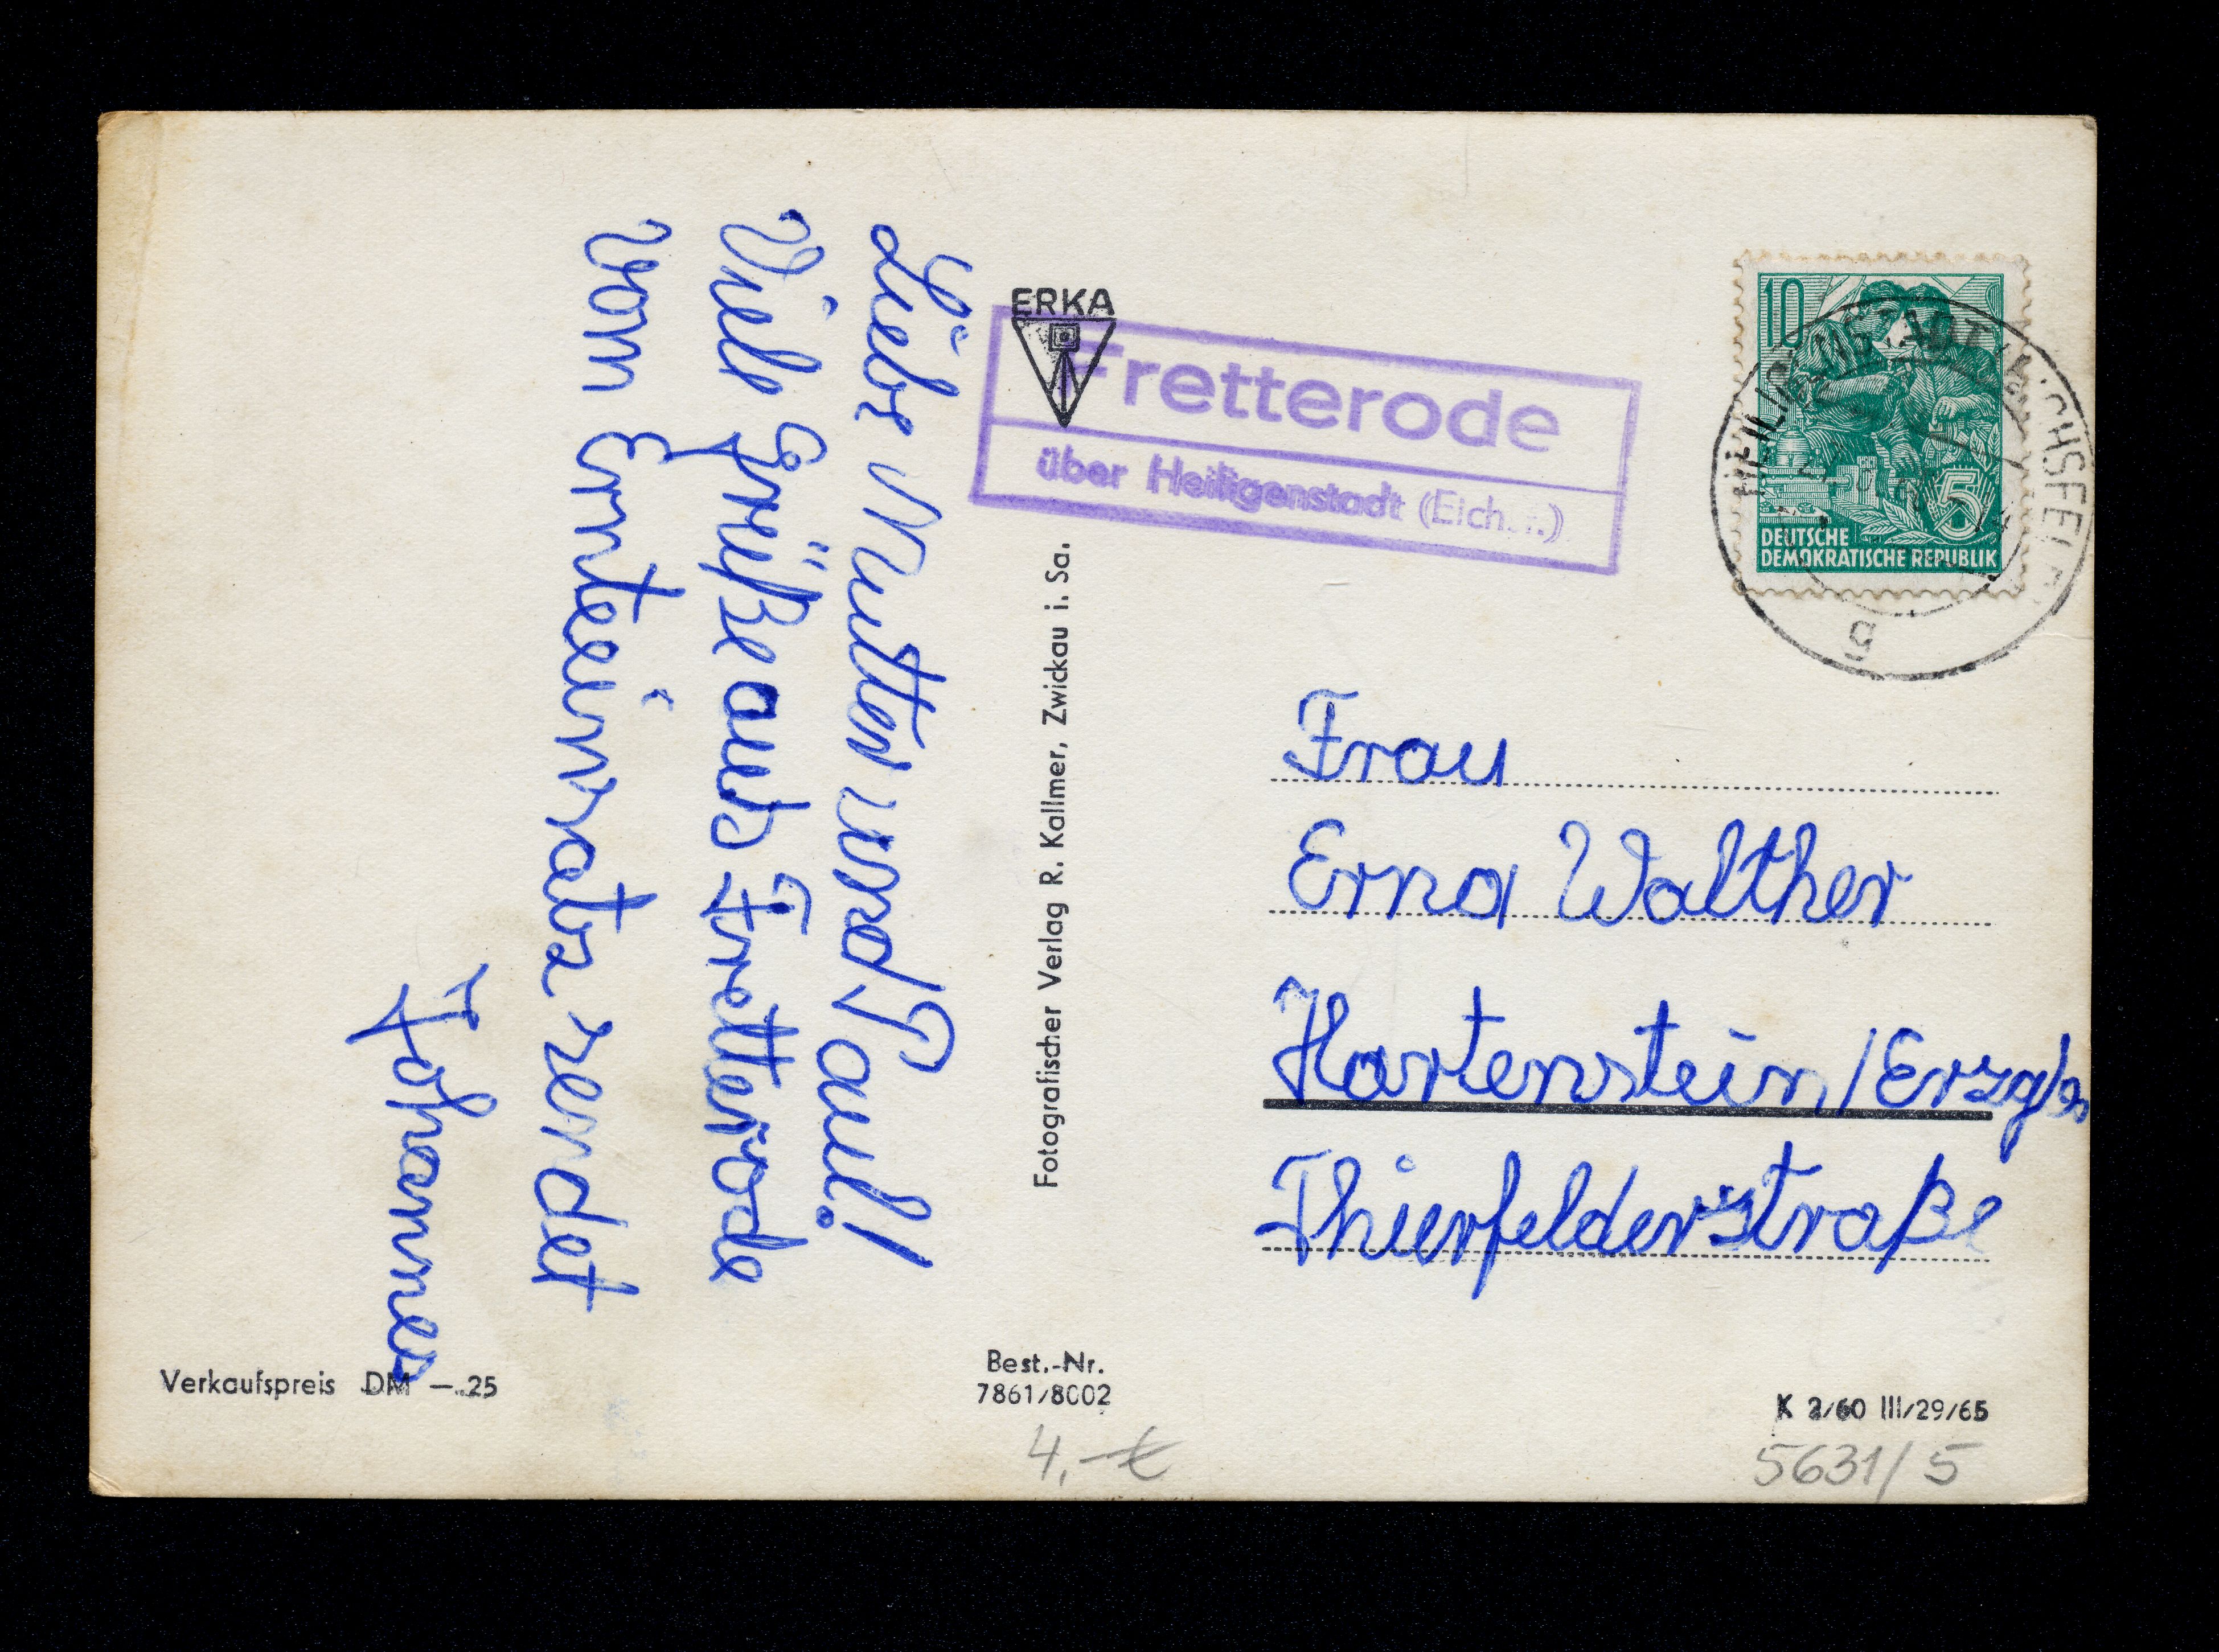 Liebe Mutter und Paul!
Viele Grüße aus Fretterode
vom Ernteeinsatz sendet
Johannes
Verkaufspreis DM —.25
ERKA
Fotografischer Verlag R. Kallmer, Zwickau i. Sa.
Best.-Nr.
7861/8002
4,-€
Fretterode
über Heiligenstadt
10
5
DEUTSCHE
DEMOKRATISCHE REPUBLIK
HEILIGENSTADT
g
Frau
Erna Walther
Hartenstein/Erzgb.
Thierfelderstraße
K 2/60 III/29/65
5631/5